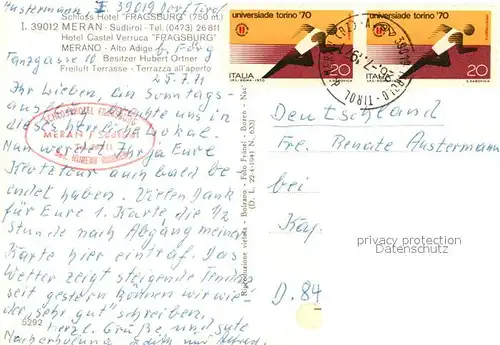 Austermann I 39019 Dorf Tirol
Schloss Hotel "FRAGSBURG" (750 m)
I. 39012 MERAN - Südtirol - Tel. (0473) 26 811
Hotel Castel Verruca "FRAGSBURG"
MERANO - Alto Adige
Besitzer Hubert Ortner
Freiluft Terrasse - Terrazza all'aperto
25.7.71
Ihr Lieben, am Sonntags-
uns in
dieses Lokal.
Nun werdet Ihr ja Eure
auch bald be-
endet haben. Vielen Dank
für Eure 1. Karte die 1/2
Stunde nach Abgang meiner
Karte hier eintraf. Das
Wetter zeigt steigende Tendenz
seit gestern können wir wieder
"sehr gut" schreiben.
herzl. Grüße und gute
Edith und Alfred
5292
MERAN SÜDTIROL
Riproduzione vietata - Bolzano - Foto Fränzl - Bozen
(D. L. 22-4-1941 N. 633)
universiade torino '70
ITALIA 20
universiade torino '70
ITALIA 20
TIROL
Deutschland
Fr. Renate Austermann
bei
Kay
D. 84
privacy protection
Datenschutz